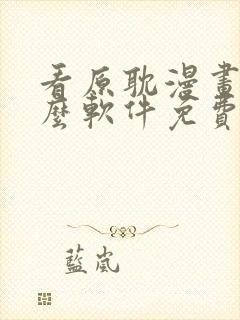 看原耽漫畫
麼軟件免費
藍嵐